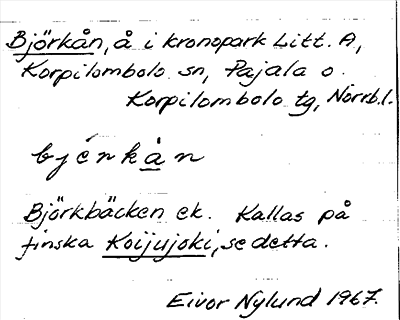 Björkån, å i kronopark Litt. A,
Korpilombolo sn, Pajala o.
Korpilombolo tg, Norrb.l.
bjérkån
Björkbäcken ek. Kallas på
finska Koijujoki, se detta.
Eivor Nylund 1967.